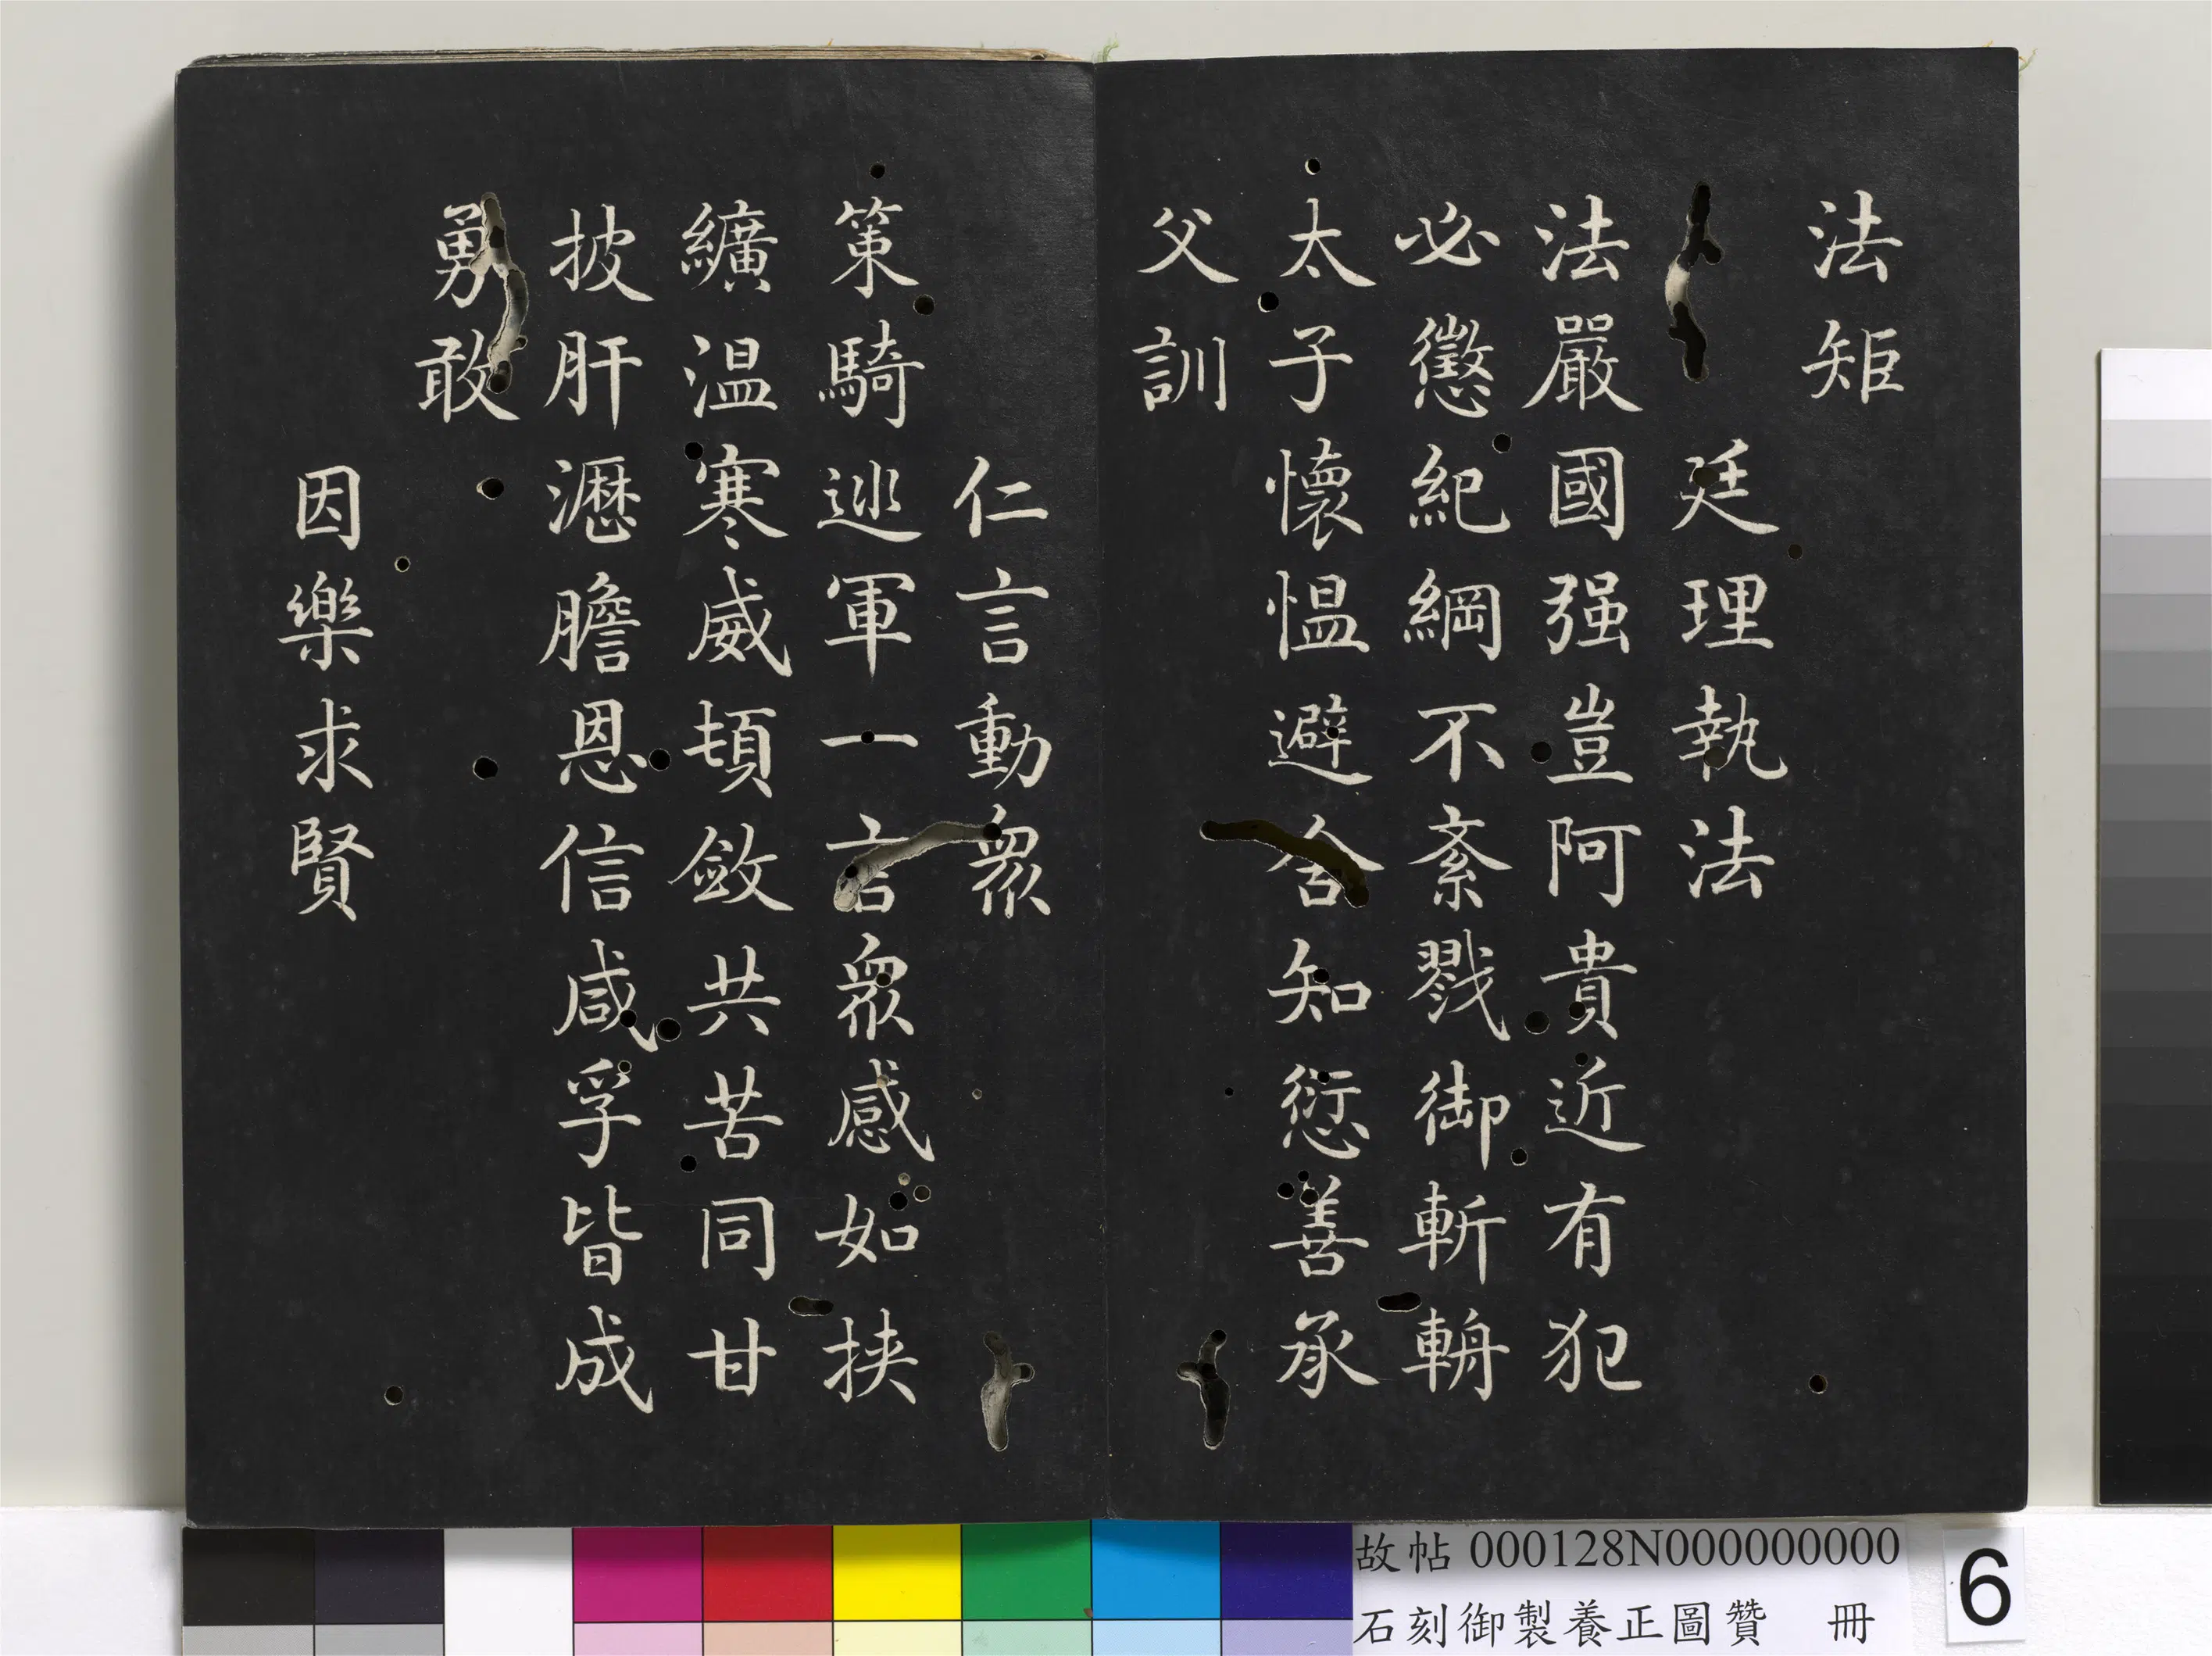 法矩
廷理執法
法嚴國强豈阿貴近有犯
必懲紀綱不紊戮御斬輈
太子懷愠避舍知愆善承
父訓
仁言動衆
策騎巡軍一言衆感如挟
纊温寒威頓斂共苦同甘
披肝瀝膽恩信咸孚皆成
勇敢
因樂求賢
故帖 000128N000000000
石刻御製養正圖贊 冊
6